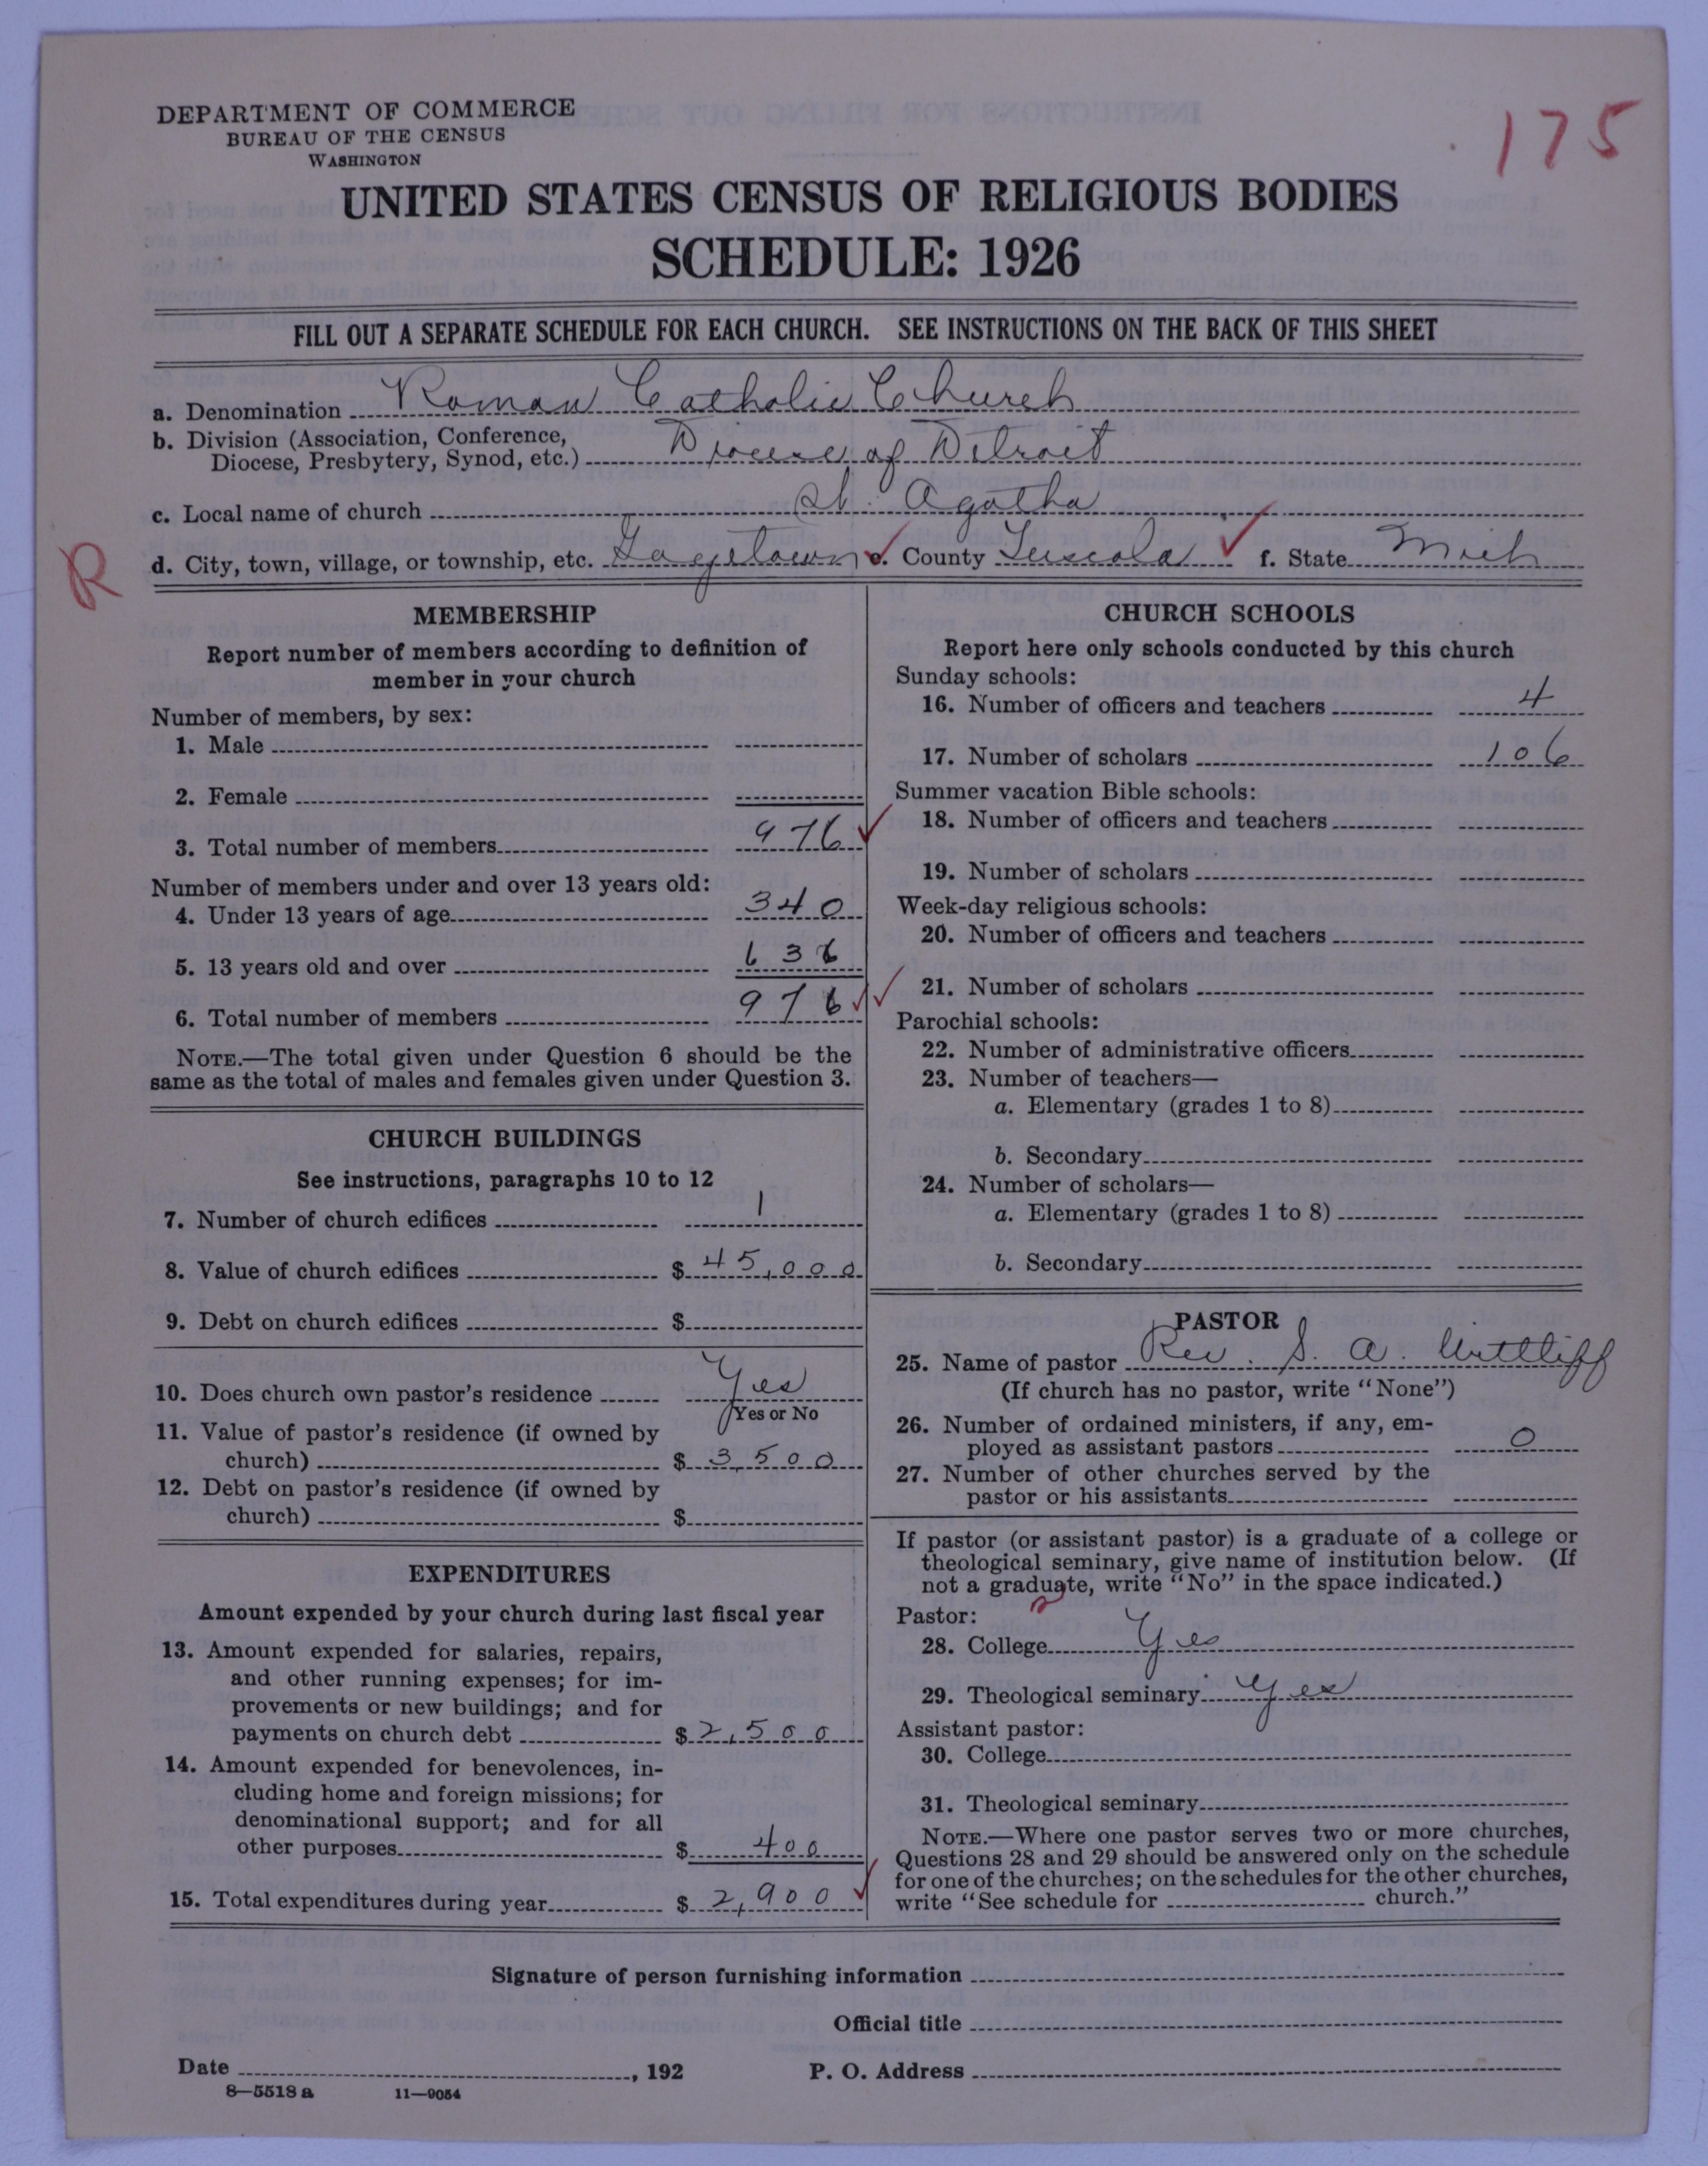 DEPARTMENT OF COMMERCE
BUREAU OF THE CENSUS
WASHINGTON
175
UNITED STATES CENSUS OF RELIGIOUS BODIES
SCHEDULE: 1926
FILL OUT A SEPARATE SCHEDULE FOR EACH CHURCH. SEE INSTRUCTIONS ON THE BACK OF THIS SHEET
a. Denomination Roman Catholic Church
b. Division (Association, Conference,
Diocese, Presbytery, Synod, etc.) Diocese of Detroit
c. Local name of church St. Agatha
R
d. City, town, village, or township, etc. Gagetown e. County Tuscola f. State Mich
MEMBERSHIP
Report number of members according to definition of
member in your church
Number of members, by sex:
1. Male
2. Female
3. Total number of members 976
Number of members under and over 13 years old:
4. Under 13 years of age 340
5. 13 years old and over 636
6. Total number of members 976
NOTE.—The total given under Question 6 should be the
same as the total of males and females given under Question 3.
CHURCH BUILDINGS
See instructions, paragraphs 10 to 12
7. Number of church edifices 1
8. Value of church edifices $ 45,000
9. Debt on church edifices $
10. Does church own pastor's residence Yes
Yes or No
11. Value of pastor's residence (if owned by
church) $ 3,500
12. Debt on pastor's residence (if owned by
church) $
EXPENDITURES
Amount expended by your church during last fiscal year
13. Amount expended for salaries, repairs,
and other running expenses; for im-
provements or new buildings; and for
payments on church debt $ 2,500
14. Amount expended for benevolences, in-
cluding home and foreign missions; for
denominational support; and for all
other purposes $ 400
15. Total expenditures during year $ 2,900
CHURCH SCHOOLS
Report here only schools conducted by this church
Sunday schools:
16. Number of officers and teachers 4
17. Number of scholars 106
Summer vacation Bible schools:
18. Number of officers and teachers
19. Number of scholars
Week-day religious schools:
20. Number of officers and teachers
21. Number of scholars
Parochial schools:
22. Number of administrative officers
23. Number of teachers—
a. Elementary (grades 1 to 8)
b. Secondary
24. Number of scholars—
a. Elementary (grades 1 to 8)
b. Secondary
PASTOR
25. Name of pastor Rev. S. A.
(If church has no pastor, write "None")
26. Number of ordained ministers, if any, em-
ployed as assistant pastors 0
27. Number of other churches served by the
pastor or his assistants
If pastor (or assistant pastor) is a graduate of a college or
theological seminary, give name of institution below. (If
not a graduate, write "No" in the space indicated.)
Pastor: 2
28. College Yes
29. Theological seminary Yes
Assistant pastor:
30. College
31. Theological seminary
NOTE.—Where one pastor serves two or more churches,
Questions 28 and 29 should be answered only on the schedule
for one of the churches; on the schedules for the other churches,
write "See schedule for church."
Signature of person furnishing information
Official title
Date , 192 P. O. Address
8—5518 a 11—9054